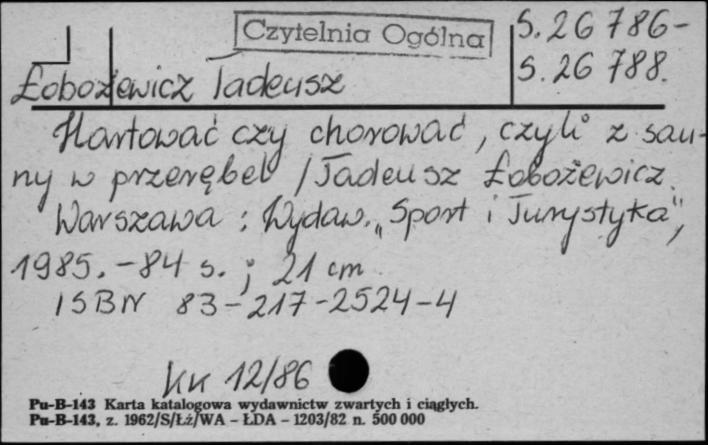 Czytelnia Ogólna
S. 26 786-
S. 26 788.
Łobożewicz Tadeusz
Hartować czy chorować, czyli z sau-
ny w przerębel / Tadeusz Łobożewicz.
Warszawa : Wydaw. „Sport i Turystyka",
1985. - 84 s. ; 21 cm
ISBN 83-217-2524-4
KK 12/86
Pu-B-143 Karta katalogowa wydawnictw zwartych i ciągłych.
Pu-B-143, z. 1962/S/Łż/WA - ŁDA - 1203/82 n. 500 000